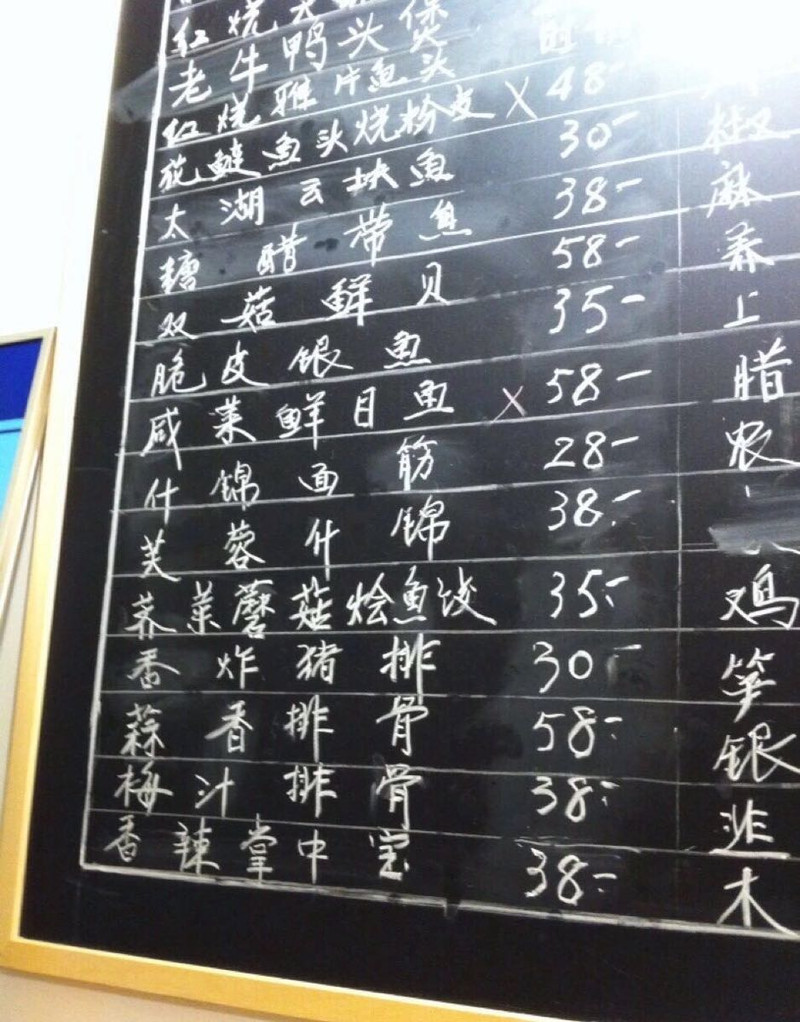 红烧
老牛鸭头煲
红烧雅片鱼头 时价
花鲢鱼头烧粉皮 × 48-
太湖云块鱼 30-
糖醋带鱼 38-
双菇鲜贝 58-
脆皮银鱼 35-
咸菜鲜目鱼 × 58-
什锦面筋 28-
芙蓉什锦 38-
荠菜蘑菇烩鱼饺 35-
香炸猪排 30-
蒜香排骨 58-
梅汁排骨 38-
香辣掌中宝 38-
椒
麻
上
腊
农
鸡
笋
银
韭
木